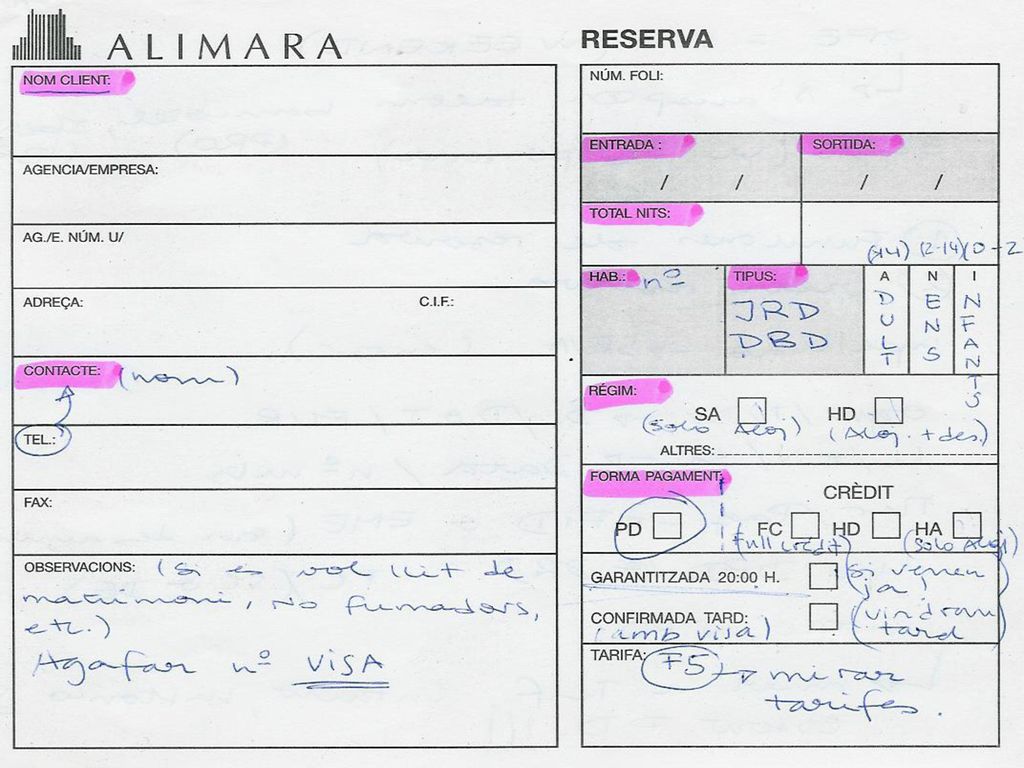 ALIMARA
NOM CLIENT:
AGENCIA/EMPRESA:
AG./E. NÚM. U/
ADREÇA: C.I.F.:
CONTACTE: (nom)
TEL.:
FAX:
OBSERVACIONS: (si es vol llit de
matrimoni, no fumadors,
etc.)
Agafar nº VISA
RESERVA
NÚM. FOLI:
ENTRADA : SORTIDA:
/ / / /
TOTAL NITS:
(>14) (2-14) (0-2
HAB.: nº TIPUS: ADULT NENS INFANTS
JRD
DBD
RÉGIM:
SA HD
(solo Aloj) (Aloj. + des.)
ALTRES:
FORMA PAGAMENT:
CRÈDIT
PD FC HD HA
(full crèdit) (solo Aloj)
GARANTITZADA 20:00 H. (si venen
ja)
CONFIRMADA TARD: (vindran
(amb visa) tard)
TARIFA: F5 → mirar
tarifes.